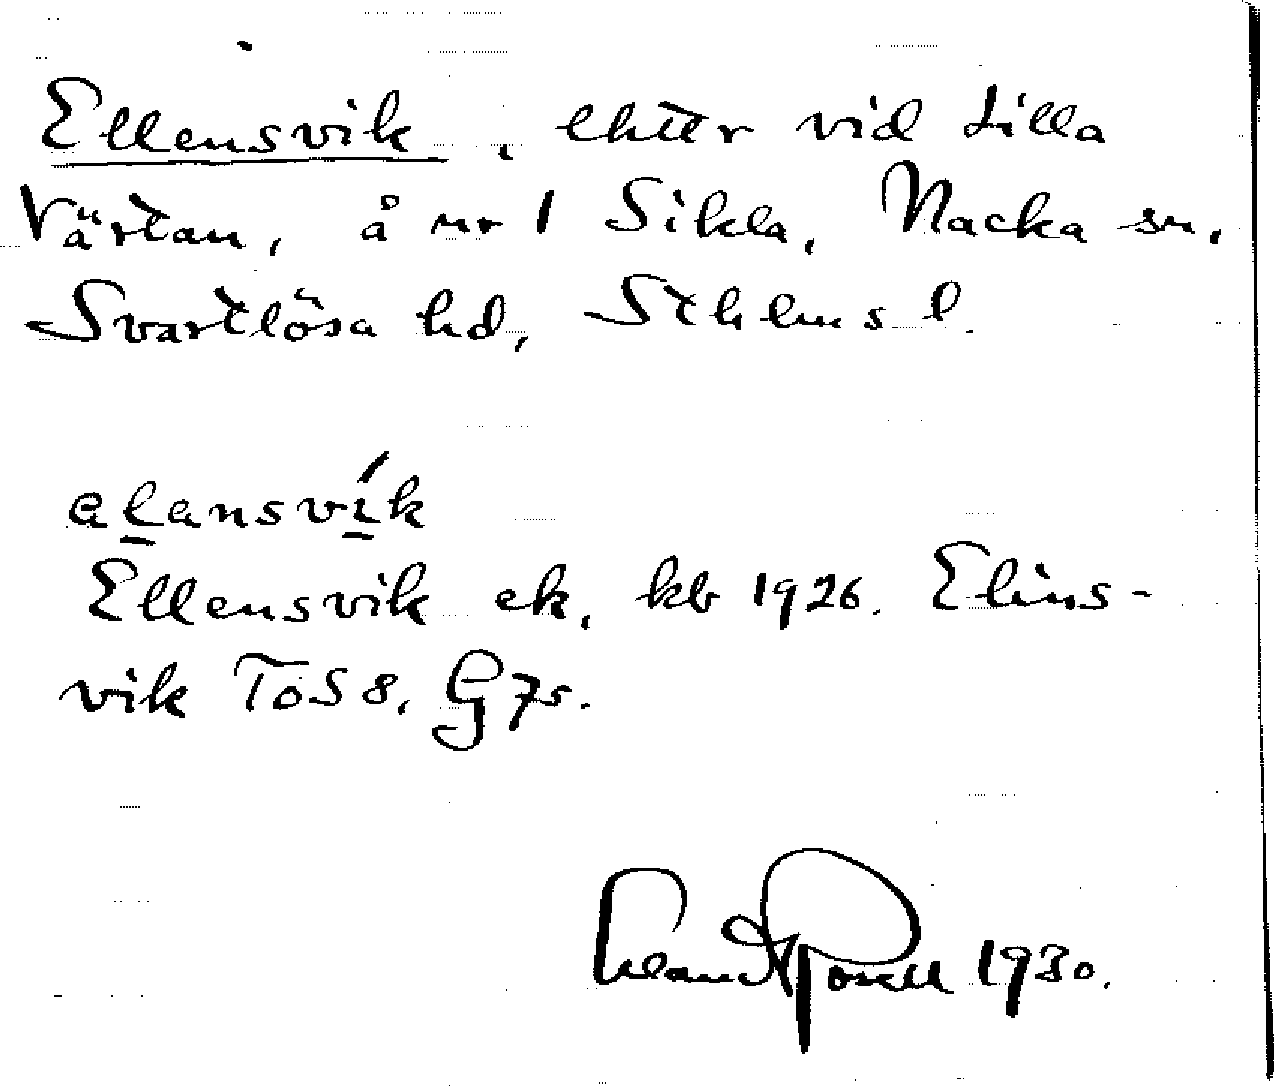 Ellensvik, lhtr vid Lilla
Värtan, å nr 1 Sikla, Nacka sn,
Svartlösa hd, Sthlms l.
elansvík
Ellensvik ek. kb 1926. Elins-
vik ToS 8, G 75.
1930.